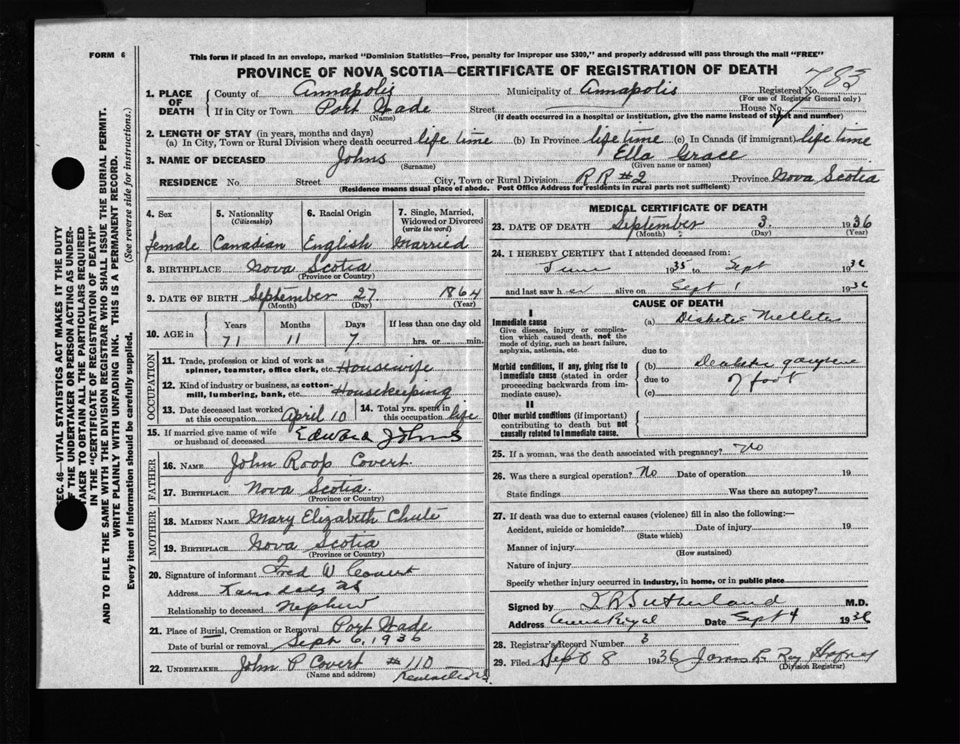 FORM 6
This form if placed in an envelope, marked "Dominian Statistics—Free, penalty for improper use $300," and properly addressed will pass through the mail "FREE"
PROVINCE OF NOVA SCOTIA—CERTIFICATE OF REGISTRATION OF DEATH
783
1. PLACE OF DEATH
County of Annapolis Municipality of Annapolis Registered No.
(For use of Registrar General only)
If in City or Town Port Wade Street House No.
(Name) (If death occurred in a hospital or institution, give the name instead of street and number)
2. LENGTH OF STAY (in years, months and days)
(a) In City, Town or Rural Division where death occurred life time (b) In Province life time (c) In Canada (if immigrant) life time
3. NAME OF DECEASED Johns Ella Grace
(Surname) (Given name or names)
RESIDENCE No. Street City, Town or Rural Division R R #2 Province Nova Scotia
(Residence means usual place of abode. Post Office Address for residents in rural parts not sufficient)
4. Sex 5. Nationality (Citizenship) 6. Racial Origin 7. Single, Married, Widowed or Divorced (write the word)
female Canadian English Married
8. BIRTHPLACE Nova Scotia
(Province or Country)
9. DATE OF BIRTH September 27 1864
(Month) (Day) (Year)
10. AGE in Years Months Days If less than one day old
71 11 7 hrs. or min.
OCCUPATION
11. Trade, profession or kind of work as spinner, teamster, office clerk, etc. Housewife
12. Kind of industry or business, as cotton-mill, lumbering, bank, etc. Housekeeping
13. Date deceased last worked at this occupation April 10 14. Total yrs. spent in this occupation life
15. If married give name of wife or husband of deceased Edward Johns
FATHER
16. NAME John Roop Covert
17. BIRTHPLACE Nova Scotia
(Province or Country)
MOTHER
18. MAIDEN NAME Mary Elizabeth Chute
19. BIRTHPLACE Nova Scotia
(Province or Country)
20. Signature of informant Fred W Covert
Address
Relationship to deceased Nephew
21. Place of Burial, Cremation or Removal Port Wade
Date of burial or removal Sept 6, 1936
22. UNDERTAKER John P Covert #110
(Name and address)
MEDICAL CERTIFICATE OF DEATH
23. DATE OF DEATH September 3. 1936
(Month) (Day) (Year)
24. I HEREBY CERTIFY that I attended deceased from:
June 1935 to Sept 1936
and last saw her alive on Sept 1 1936
CAUSE OF DEATH
I
Immediate cause (a) Diabetes Mellitus
Give disease, injury or complication which caused death, not the mode of dying, such as heart failure, asphyxia, asthenia, etc.
due to
Morbid conditions, if any, giving rise to immediate cause (stated in order proceeding backwards from immediate cause).
(b) Diabetic gangrene
due to of foot
(c)
II
Other morbid conditions (if important) contributing to death but not causally related to immediate cause.
25. If a woman, was the death associated with pregnancy? No
26. Was there a surgical operation? No Date of operation 19
State findings Was there an autopsy?
27. If death was due to external causes (violence) fill in also the following:—
Accident, suicide or homicide? Date of injury 19
(State which)
Manner of injury
(How sustained)
Nature of injury
Specify whether injury occurred in industry, in home, or in public place
Signed by Sutherland M.D.
Address Date Sept 4 1936
28. Registrar's Record Number 3
29. Filed Sept 8 1936
(Division Registrar)
SEC. 46—VITAL STATISTICS ACT MAKES IT THE DUTY
OF THE UNDERTAKER OR PERSON ACTING AS UNDER-
TAKER TO OBTAIN ALL THE PARTICULARS REQUIRED
IN THE "CERTIFICATE OF REGISTRATION OF DEATH"
AND TO FILE THE SAME WITH THE DIVISION REGISTRAR WHO SHALL ISSUE THE BURIAL PERMIT.
WRITE PLAINLY WITH UNFADING INK. THIS IS A PERMANENT RECORD.
Every item of information should be carefully supplied. (See reverse side for instructions.)